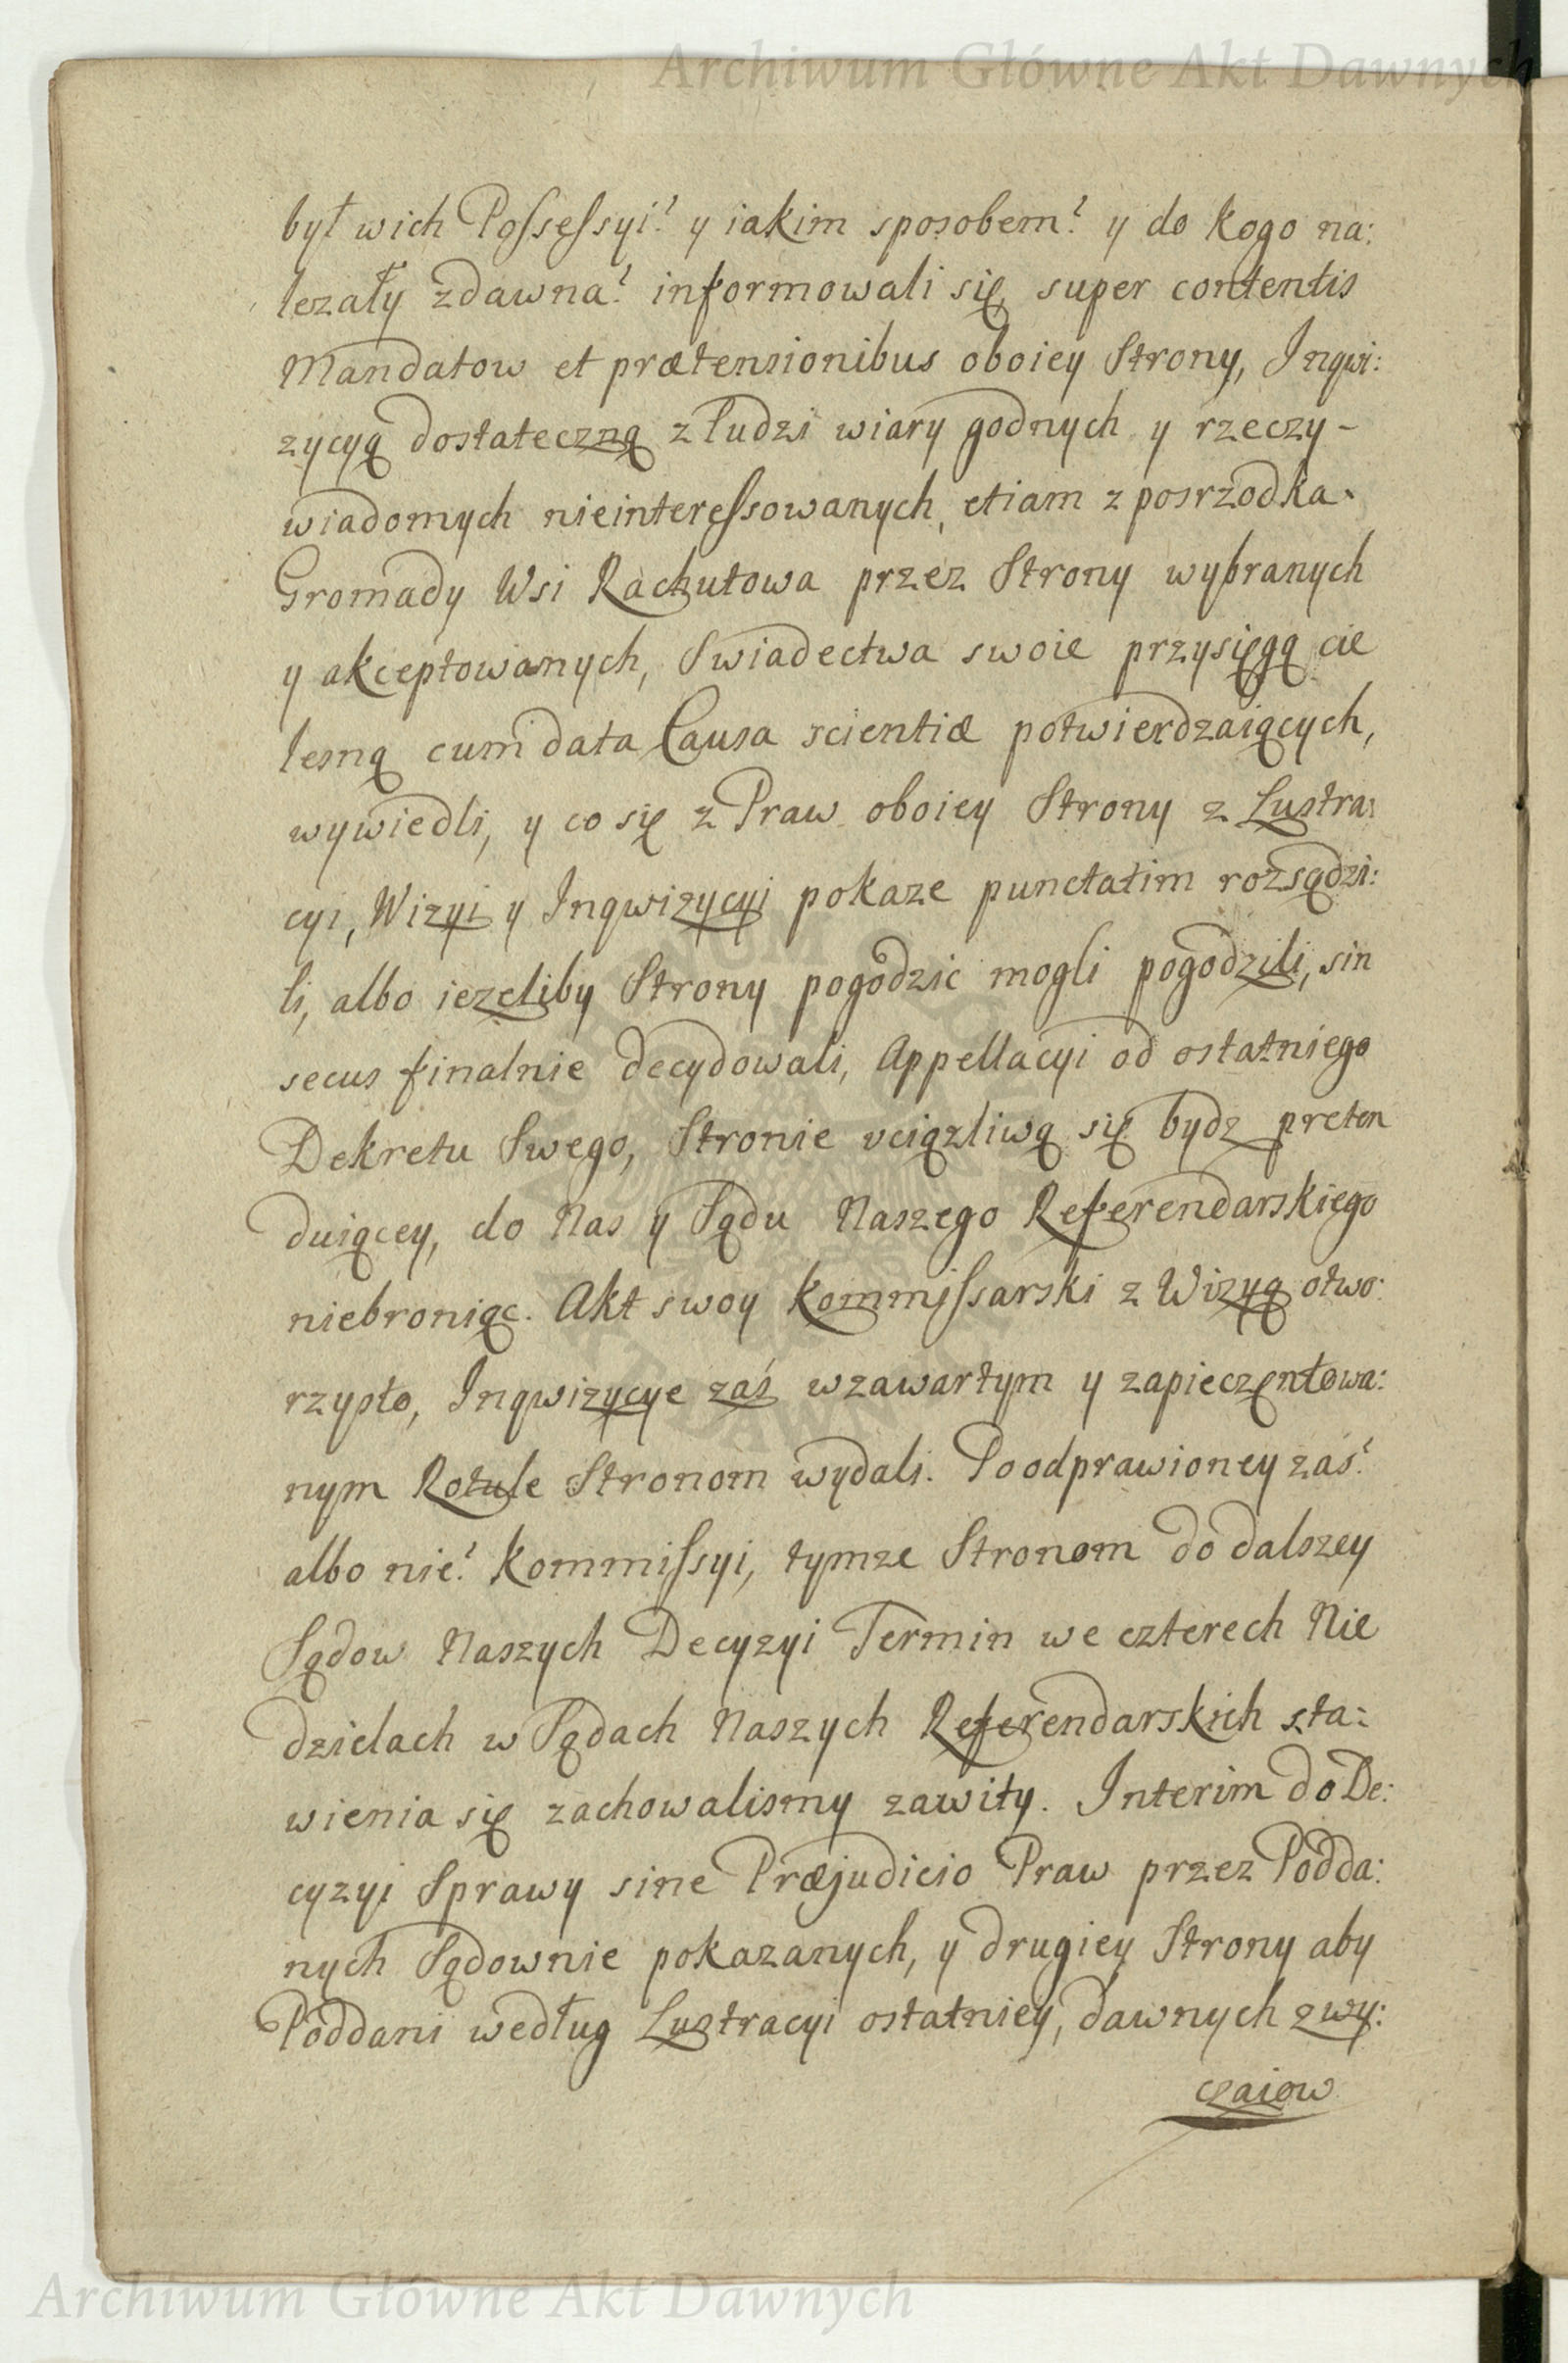 Archiwum Główne Akt Dawnych
był wich Possessyi? y iakim sposobem? y do kogo na:
lezały zdawna? informowali się super contentis
Mandatow et prætensionibus oboiey Strony, Inqwi:
zycyą dostateczną z ludzi wiary godnych y rzeczy-
wiadomych nieinteressowanych, etiam z posrzodka
Gromady Wsi Rachutowa przez Strony wybranych
y akceptowanych, Swiadectwa swoie przysięgą cie
lesną cum data Causa scientiæ potwierdzaiących,
wywiedli, y co się z Praw oboiey Strony z Lustra:
cyi, Wizyi y Inqwizycyi pokaze punctatim rozsądzi:
li, albo iezeliby Strony pogodzic mogli pogodzili, sin
secus finalnie decydowali, Appellacyi od ostatniego
Dekretu Swego, Stronie uciązliwą się bydz preten
duiącey, do Nas y Sądu Naszego Referendarskiego
niebroniąc. Akt swoy Kommissarski z Wizyą otwo:
rzysto, Inqwizycye zaś wzawartym y zapieczętowa:
nym Rotule Stronom wydali. Po odprawioney zaś?
albo nie? Kommissyi, tymze Stronom do dalszey
Sądow Naszych Decyzyi Termin we czterech Nie
dzielach w Sądach Naszych Referendarskich sta:
wienia się zachowalismy zawity. Interim do De:
cyzyi Sprawy sine Præjudicio Praw przez Podda:
nych Sądownie pokazanych, y drugiey Strony aby
Poddani według Lustracyi ostatniey, dawnych zwy:
czaiow
Archiwum Główne Akt Dawnych